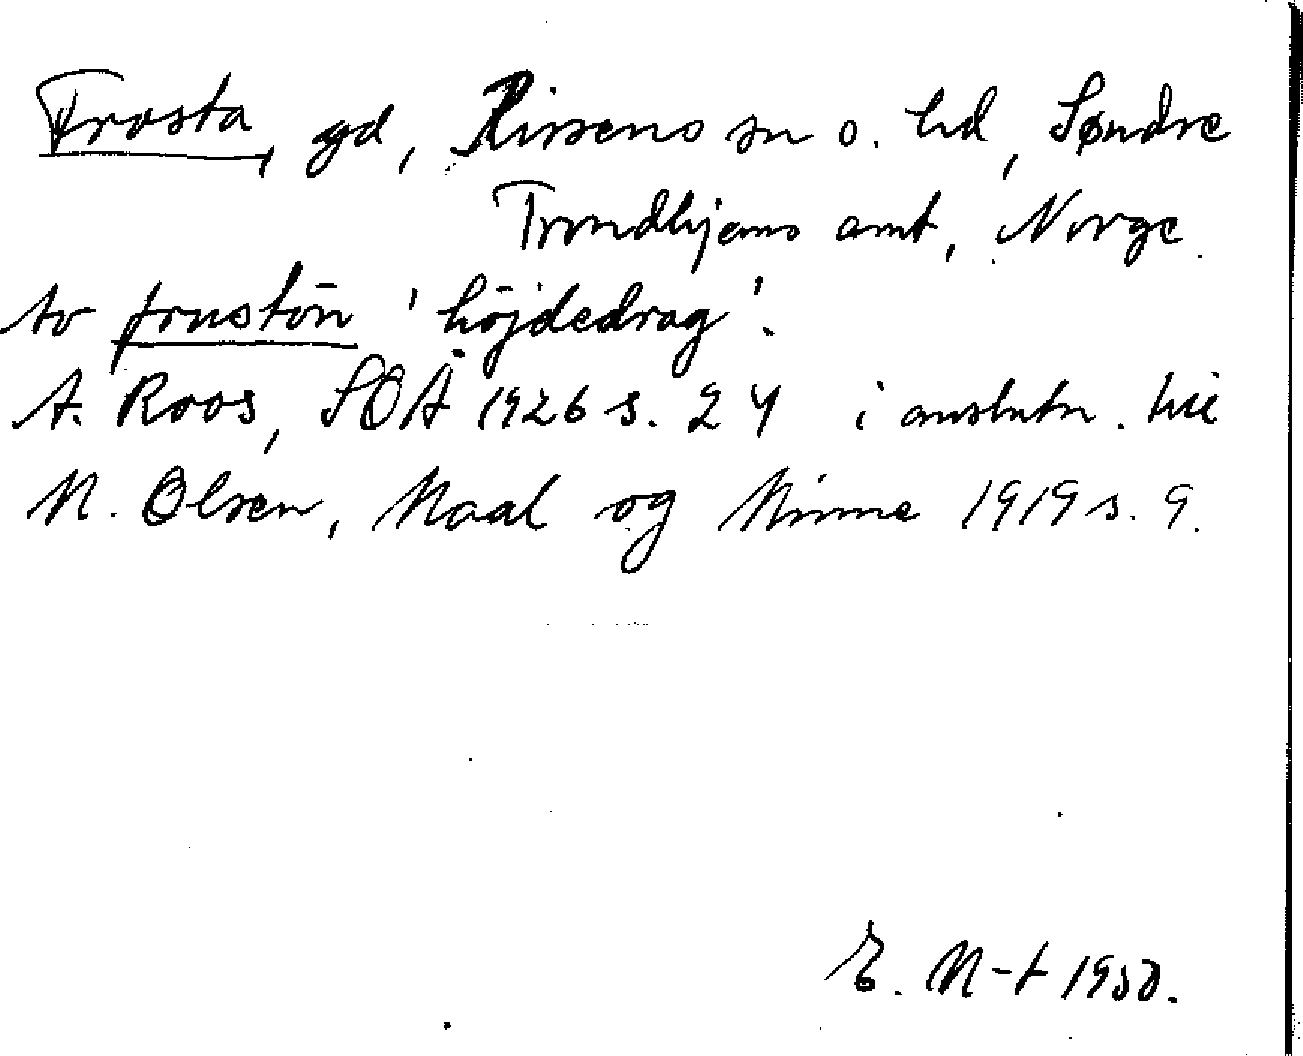 Frosta, gd, Rissens sn o. hd, Søndre
Trondhjems amt, Norge.
av frustōn 'höjdedrag'.
A. Roos, SOÅ 1926 s. 24 i anslutn. till
M. Olsen, Maal og Minne 1919 s. 9.
E. N-t 1950.